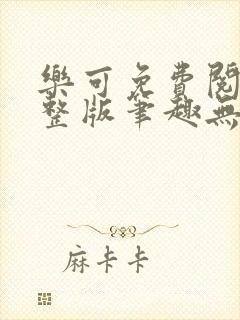 樂可免費閱
整版筆趣無
麻卡卡